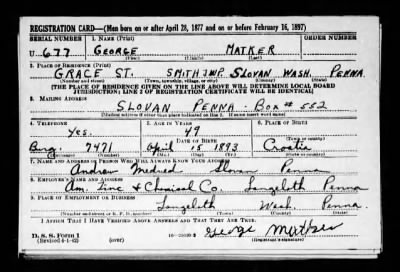 REGISTRATION CARD—(Men born on or after April 28, 1877 and on or before February 16, 1897)
SERIAL NUMBER 1. NAME (Print) ORDER NUMBER
U 677 GEORGE MATKER
(First) (Middle) (Last)
2. PLACE OF RESIDENCE (Print)
GRACE ST. SMITH TWP. SLOVAN WASH. PENNA.
(Number and street) (Town, township, village, or city) (County) (State)
[THE PLACE OF RESIDENCE GIVEN ON THE LINE ABOVE WILL DETERMINE LOCAL BOARD
JURISDICTION; LINE 2 OF REGISTRATION CERTIFICATE WILL BE IDENTICAL]
3. MAILING ADDRESS
SLOVAN PENNA - BOX # 552
[Mailing address if other than place indicated on line 2. If same insert word same]
4. TELEPHONE 5. AGE IN YEARS 6. PLACE OF BIRTH
Yes. 49
DATE OF BIRTH (Town or county)
Burg. 7471 April 15 1893 Croatia
(Exchange) (Number) (Mo.) (Day) (Yr.) (State or country)
7. NAME AND ADDRESS OF PERSON WHO WILL ALWAYS KNOW YOUR ADDRESS
Andrew Medved Slovan Penna
8. EMPLOYER'S NAME AND ADDRESS
Am. Zinc & Chemical Co. Langeloth Penna
9. PLACE OF EMPLOYMENT OR BUSINESS
Langeloth Wash. Penna.
(Number and street or R. F. D. number) (Town) (County) (State)
I AFFIRM THAT I HAVE VERIFIED ABOVE ANSWERS AND THAT THEY ARE TRUE.
D. S. S. Form 1
(Revised 4-1-42) (over) George
(Registrant's signature)